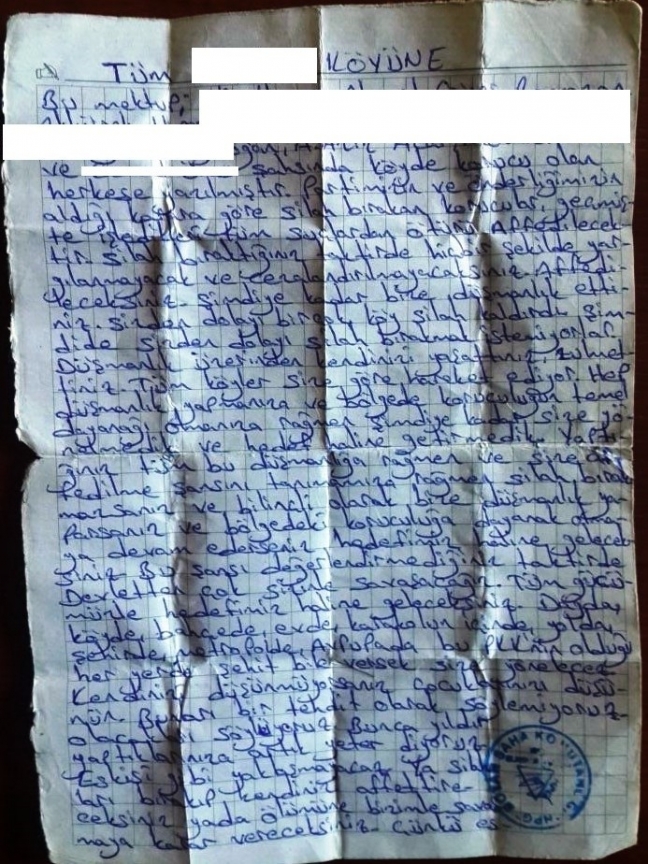 TÜM KÖYÜNE
Bu mektup,
ve şahsında köyde korucu olan
herkese yazılmıştır. Partimizin ve önderliğimizin
aldığı karara göre silah bırakan korucular geçmiş-
te tüm suçlardan ötürü Affedilecek-
tir. Silah bıraktığınız taktirde hiçbir şekilde yar-
gılanmayacak ve cezalandırılmayacaksınız. Affedi-
leceksiniz. Şimdiye kadar bize düşmanlık etti-
niz. Sizden dolayı birçok köy silah kaldırdı. Şim-
dide sizden dolayı silah bırakmak istemiyorlar.
Düşmanlık üzerinden kendinizi yaşattınız, zulmet-
tiniz. Tüm köyler size göre hareket ediyor. Hep
düşmanlık yapmanıza ve bölgede koruculuğun temel
dayanağı olmanıza rağmen şimdiye kadar size yö-
nelmedik ve hedef haline getirmedik. Yaptı-
ğınız tüm bu düşmanlığa rağmen ve size af-
fedilme şansını tanımamıza rağmen silah bırak-
mazsanız ve bilinçli olarak bize düşmanlık ya-
parsanız ve bölgedeki koruculuğa dayanak olma-
ya devam ederseniz hedefimiz haline gelecek-
siniz. Bu şansı değerlendirmediğiniz taktirde
Devletten çok sizinle savaşacağız. Tüm gücü-
müzle hedefimiz haline geleceksiniz. Dağda,
köyde, bahçede, evde, karakolun içinde, yolda,
şehirde, metropolde, Avrupada bu PKK'nin olduğu
her yerde şehit bile versek size yöneleceğiz
Kendinizi düşünmüyorsanız çocuklarınızı düşü-
nün. Bunları bir tehdit olarak söylemiyoruz.
olacağını söylüyoruz. Bunca yıldır
yaptıklarınıza artık yeter diyoruz.
Eskisi gibi yaklaşmayacağız. Ya silah-
ları bırakıp kendinizi affettire-
ceksiniz yada ölümüne bizimle savaş-
maya karar vereceksiniz. Çünkü es
SAHA KOMUTANLIĞI
HPG